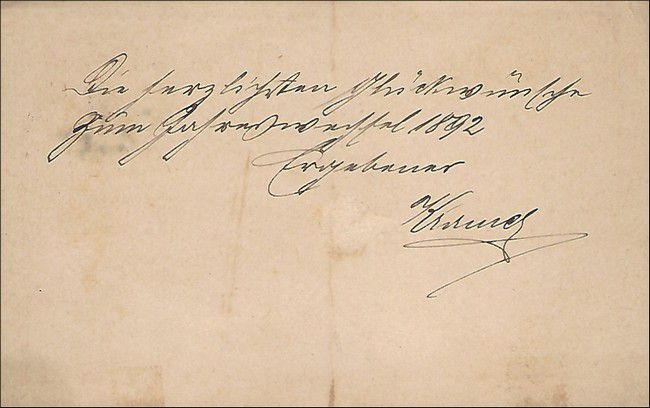 Die herzlichsten Glückwünsche
zum Jahreswechsel 1892
Ergebener